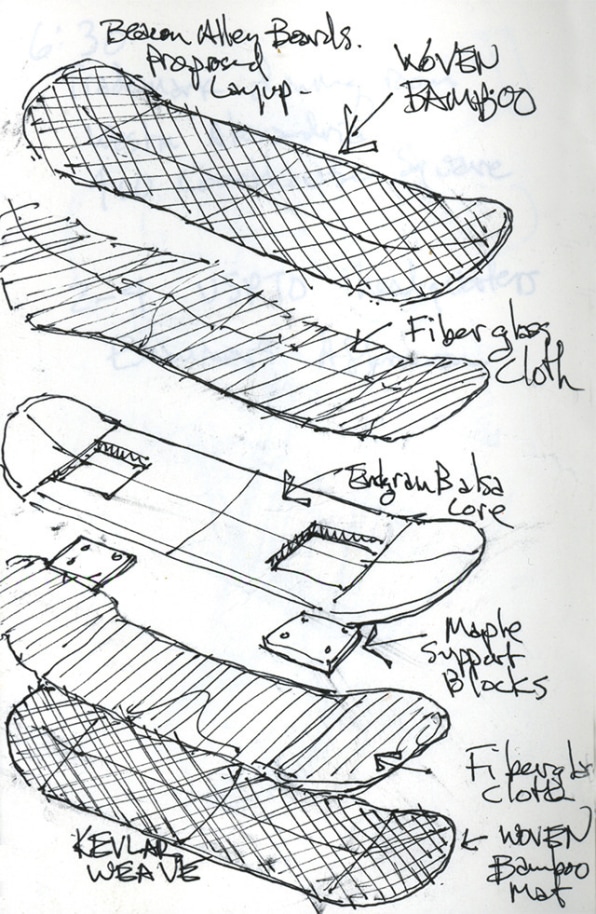 Beacon Alley Boards.
Proposed
Layup-
WOVEN
BAMBOO
Fiberglass
Cloth
Endgrain Balsa
Core
Maple
Support
Blocks
Fiberglass
Cloth
WOVEN
Bamboo
Mat
KEVLAR
WEAVE
6:30
Square